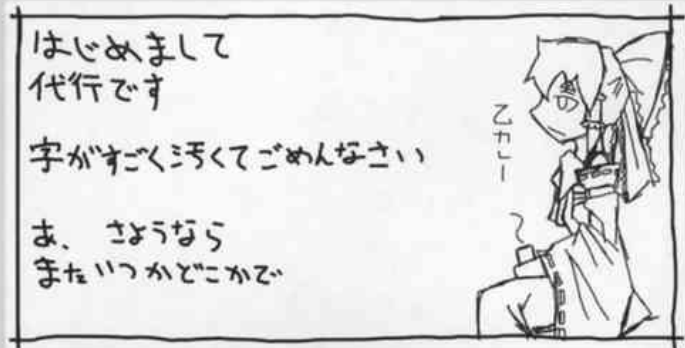 はじめまして
代行です
字がすごく汚くてごめんなさい
あ、さようなら
またいつかどこかで
乙カレー